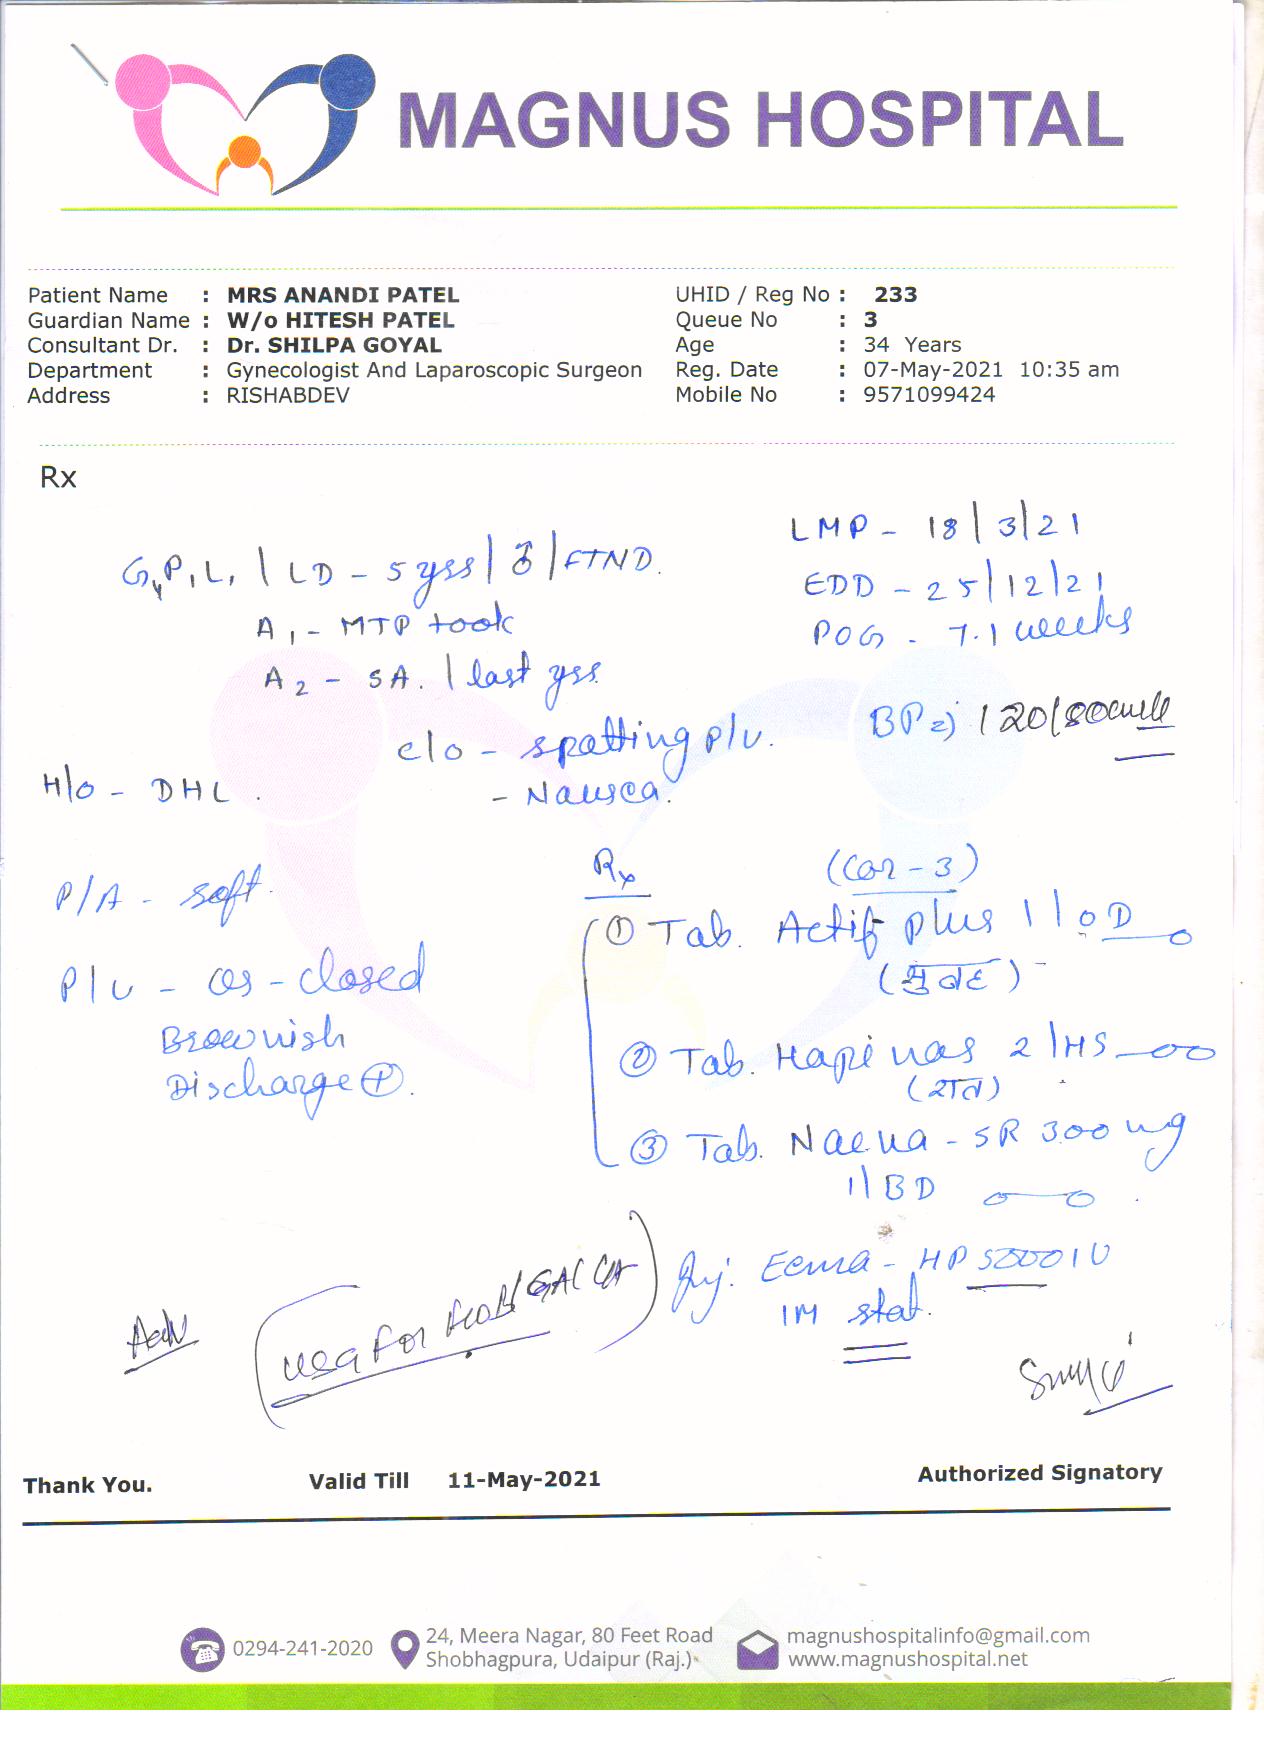 MAGNUS HOSPITAL
Patient Name : MRS ANANDI PATEL
Guardian Name : W/o HITESH PATEL
Consultant Dr. : Dr. SHILPA GOYAL
Department : Gynecologist And Laparoscopic Surgeon
Address : RISHABDEV
UHID / Reg No : 233
Queue No : 3
Age : 34 Years
Reg. Date : 07-May-2021 10:35 am
Mobile No : 9571099424
Rx
LMP - 18/3/21
EDD - 25/12/21
POG - 7.1 weeks
G4P1L1 | LD - 5 yrs | ♂ | FTND.
A1 - MTP took
A2 - SA. | last yrs
BP 120/80
c/o - spotting p/v.
- Nausea.
H/o - DHL.
P/A - soft.
P/v - os - closed
Brownish
Discharge +.
Rx
① Tab. Actif plus 1 | OD
(सुबह)
② Tab. 2 | HS
(रात)
③ Tab. - SR 300 mg
1 | BD
Inj. - HP 5000 IU
IM stat.
Adv
USG For
Thank You.
Valid Till 11-May-2021
Authorized Signatory
0294-241-2020
24, Meera Nagar, 80 Feet Road
Shobhagpura, Udaipur (Raj.)
magnushospitalinfo@gmail.com
www.magnushospital.net